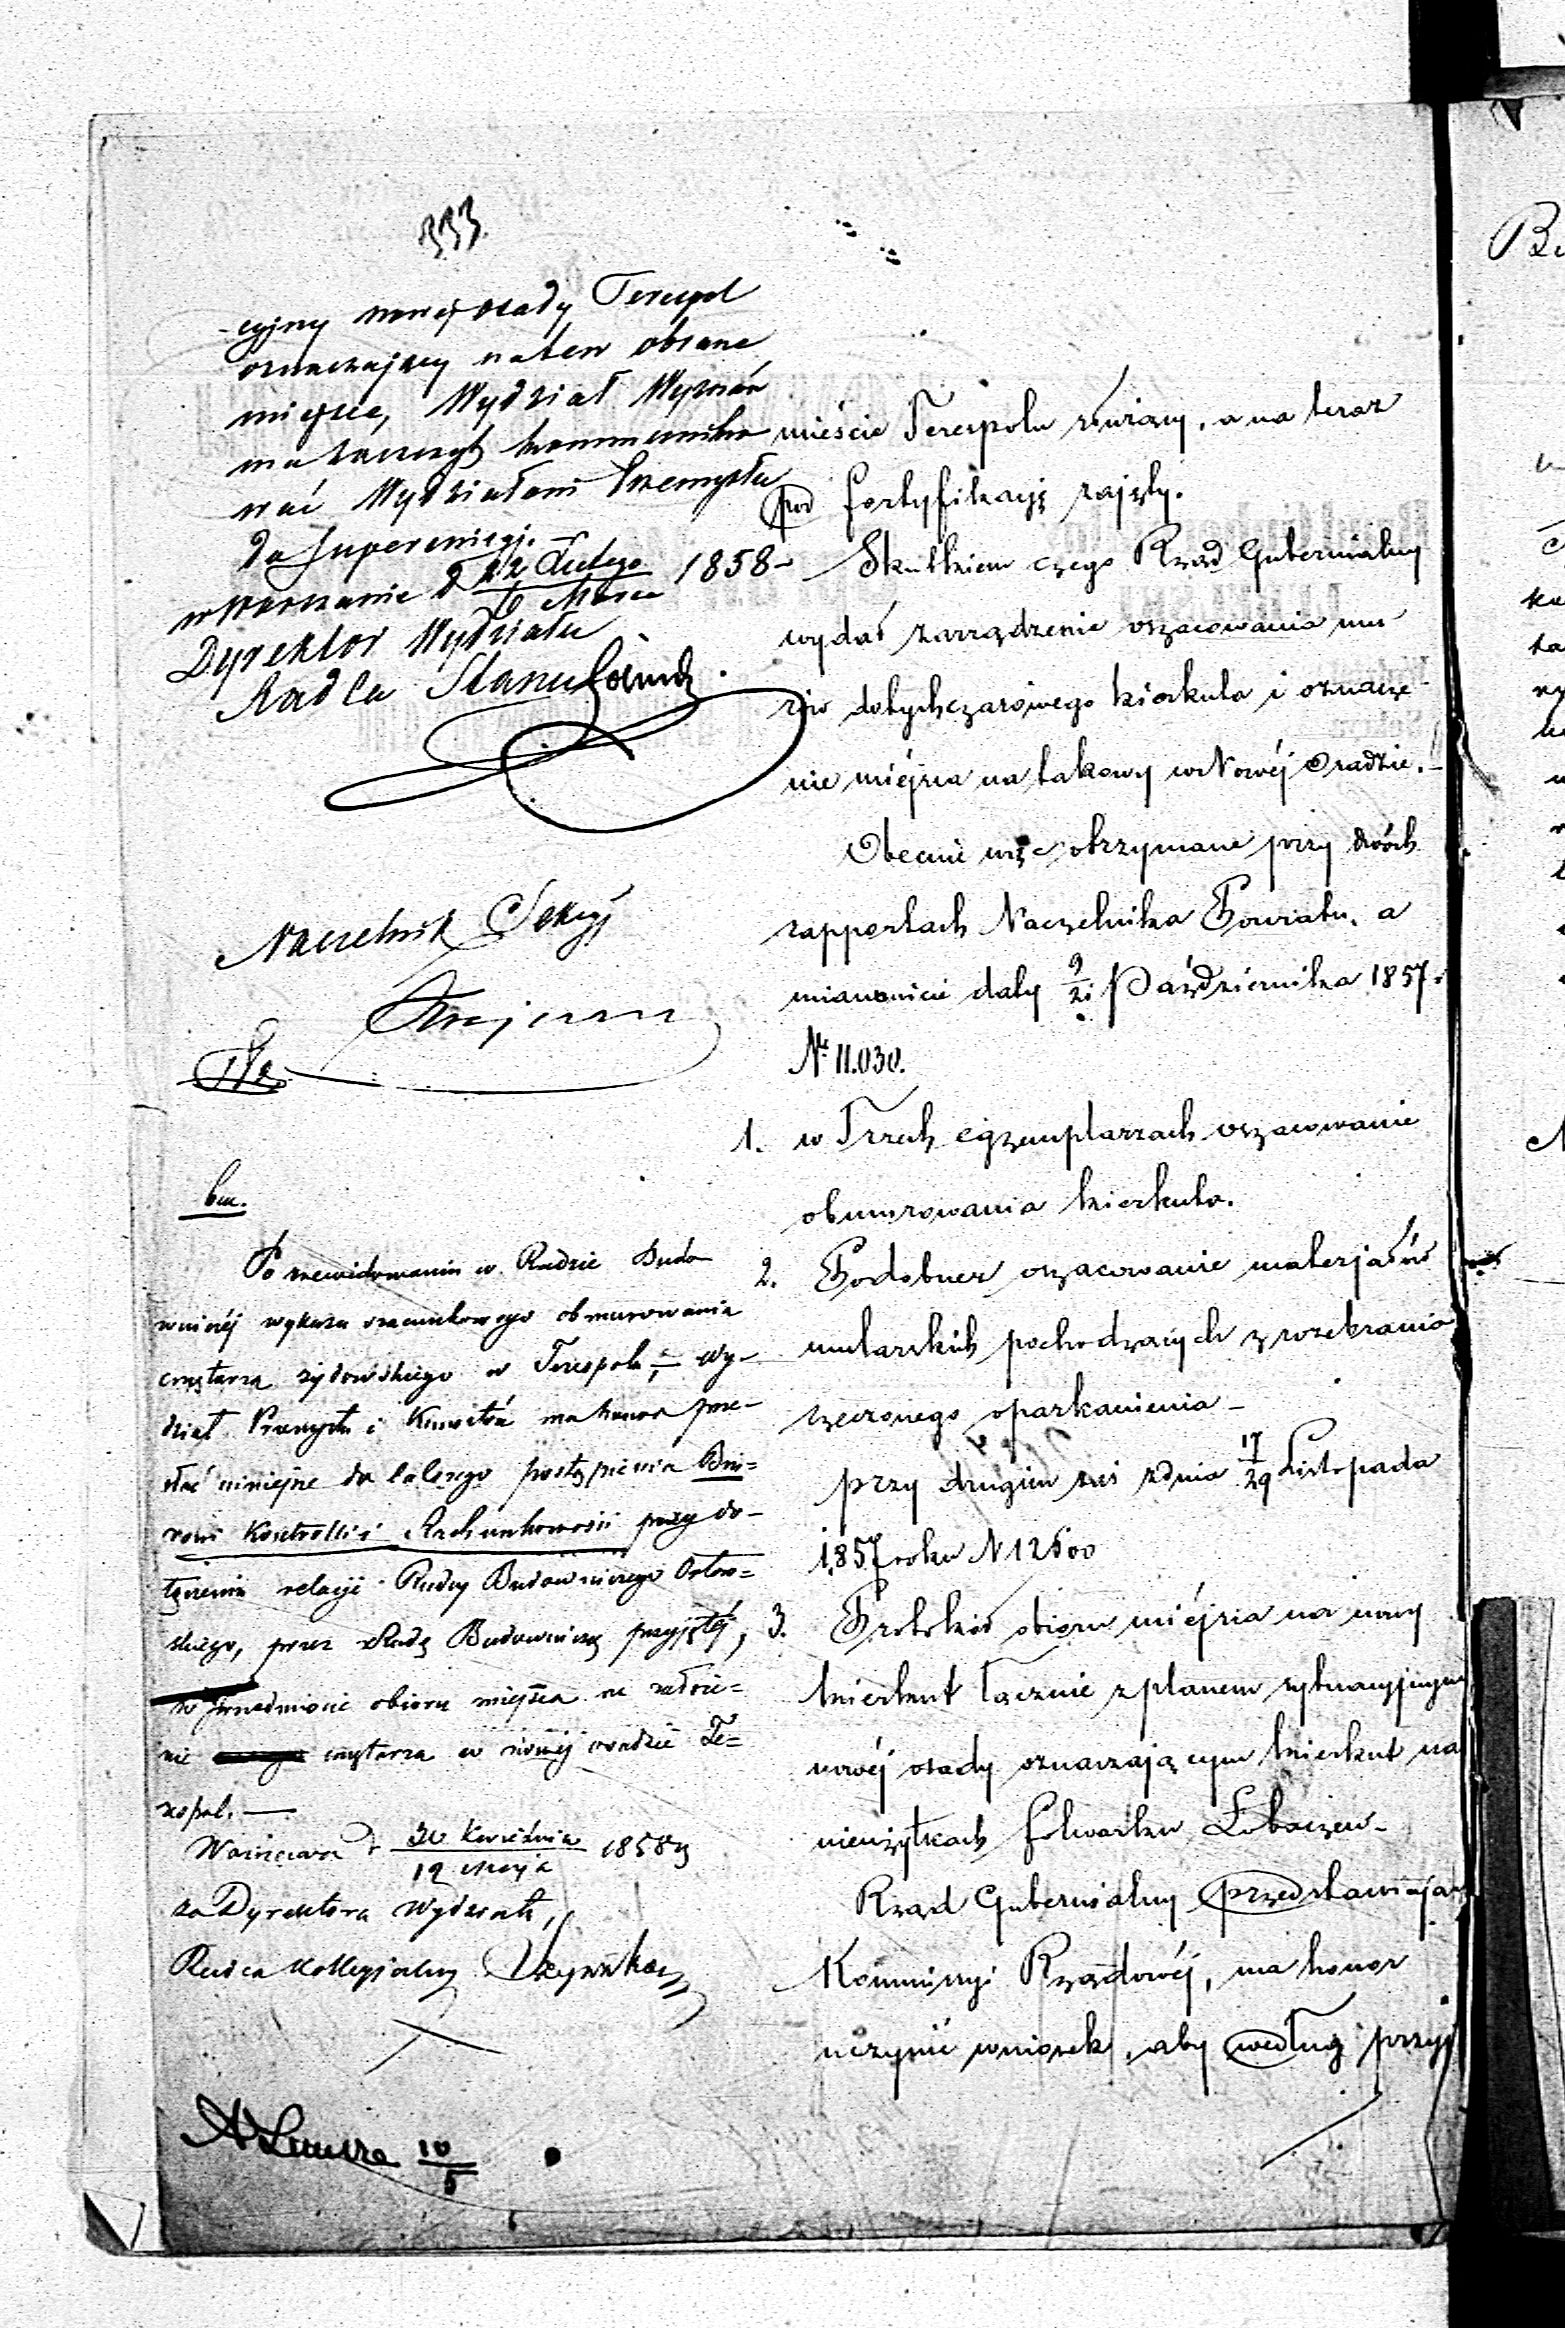 333.
-cyjny nowej osady Terespol
oznaczający na ten obrane
miejsce, Wydział Wyznań
ma zaszczyt kommuniko
wać Wydziałowi Przemysłu
do superewizji. —
w Warszawie d 22 Lutego / 6 Marca 1858 —
Dyrektor Wydziału
Radca Stanu
Naczelnik Sekcyj
bm.
Po zrewidowaniu w Radzie Budo
wniczéj wykazu szacunkowego obmurowania
cmętarza żydowskiego w Terespolu, — Wy-
dział Przemysłu i Kunsztów ma honor prze-
słać niniejsze do dalszego postąpienia
Kontrolli i Rachunkowości przy do-
łączeniu relacji Radcy Budowniczego Orłow=
skiego, przez Radę Budowniczą przyjętéj,
w przedmiocie obioru miejsca na założe=
nie cmętarza w nowéj osadzie Te=
respol. —
Warszawa d 30 Kwietnia / 12 Maja 1858 r
za Dyrektora Wydziału,
Radca Kollegjalny
10/5
mieście Terespolu zniszczony, a na teraz
pod fortyfikacją zajęty.
Skutkiem czego Rząd Gubernialny
wydał zarządzenie oszacowania mu
rów dotychczasowego kierkuta i oznacze
nie miéjsca na takowy w Nowéj Osadzie. —
Obecnie więc otrzymane przy dwóch
rapportach Naczelnika Powiatu, a
mianowicie daty 9/21 Października 1857 r
Nr 11.030.
1. w Trzech egzemplarzach oszacowanie
obmurowania kierkuta.
2. Podobnież oszacowanie materjałów
mularskich pochodzących z rozebrania
rzeczonego oparkanienia —
przy drugim zaś z dnia 17/29 Listopada
1857 roku N 12500
3. Protokół obioru miéjsca na nowy
kierkut łącznie z planem sytuacyjnym
nowéj osady oznaczającym kierkut na
nieużytkach folwarku Łobaczew —
Rząd Gubernialny przedstawiając
Kommissyi Rządowéj, ma honor
uczynić wniosek, aby według przyj